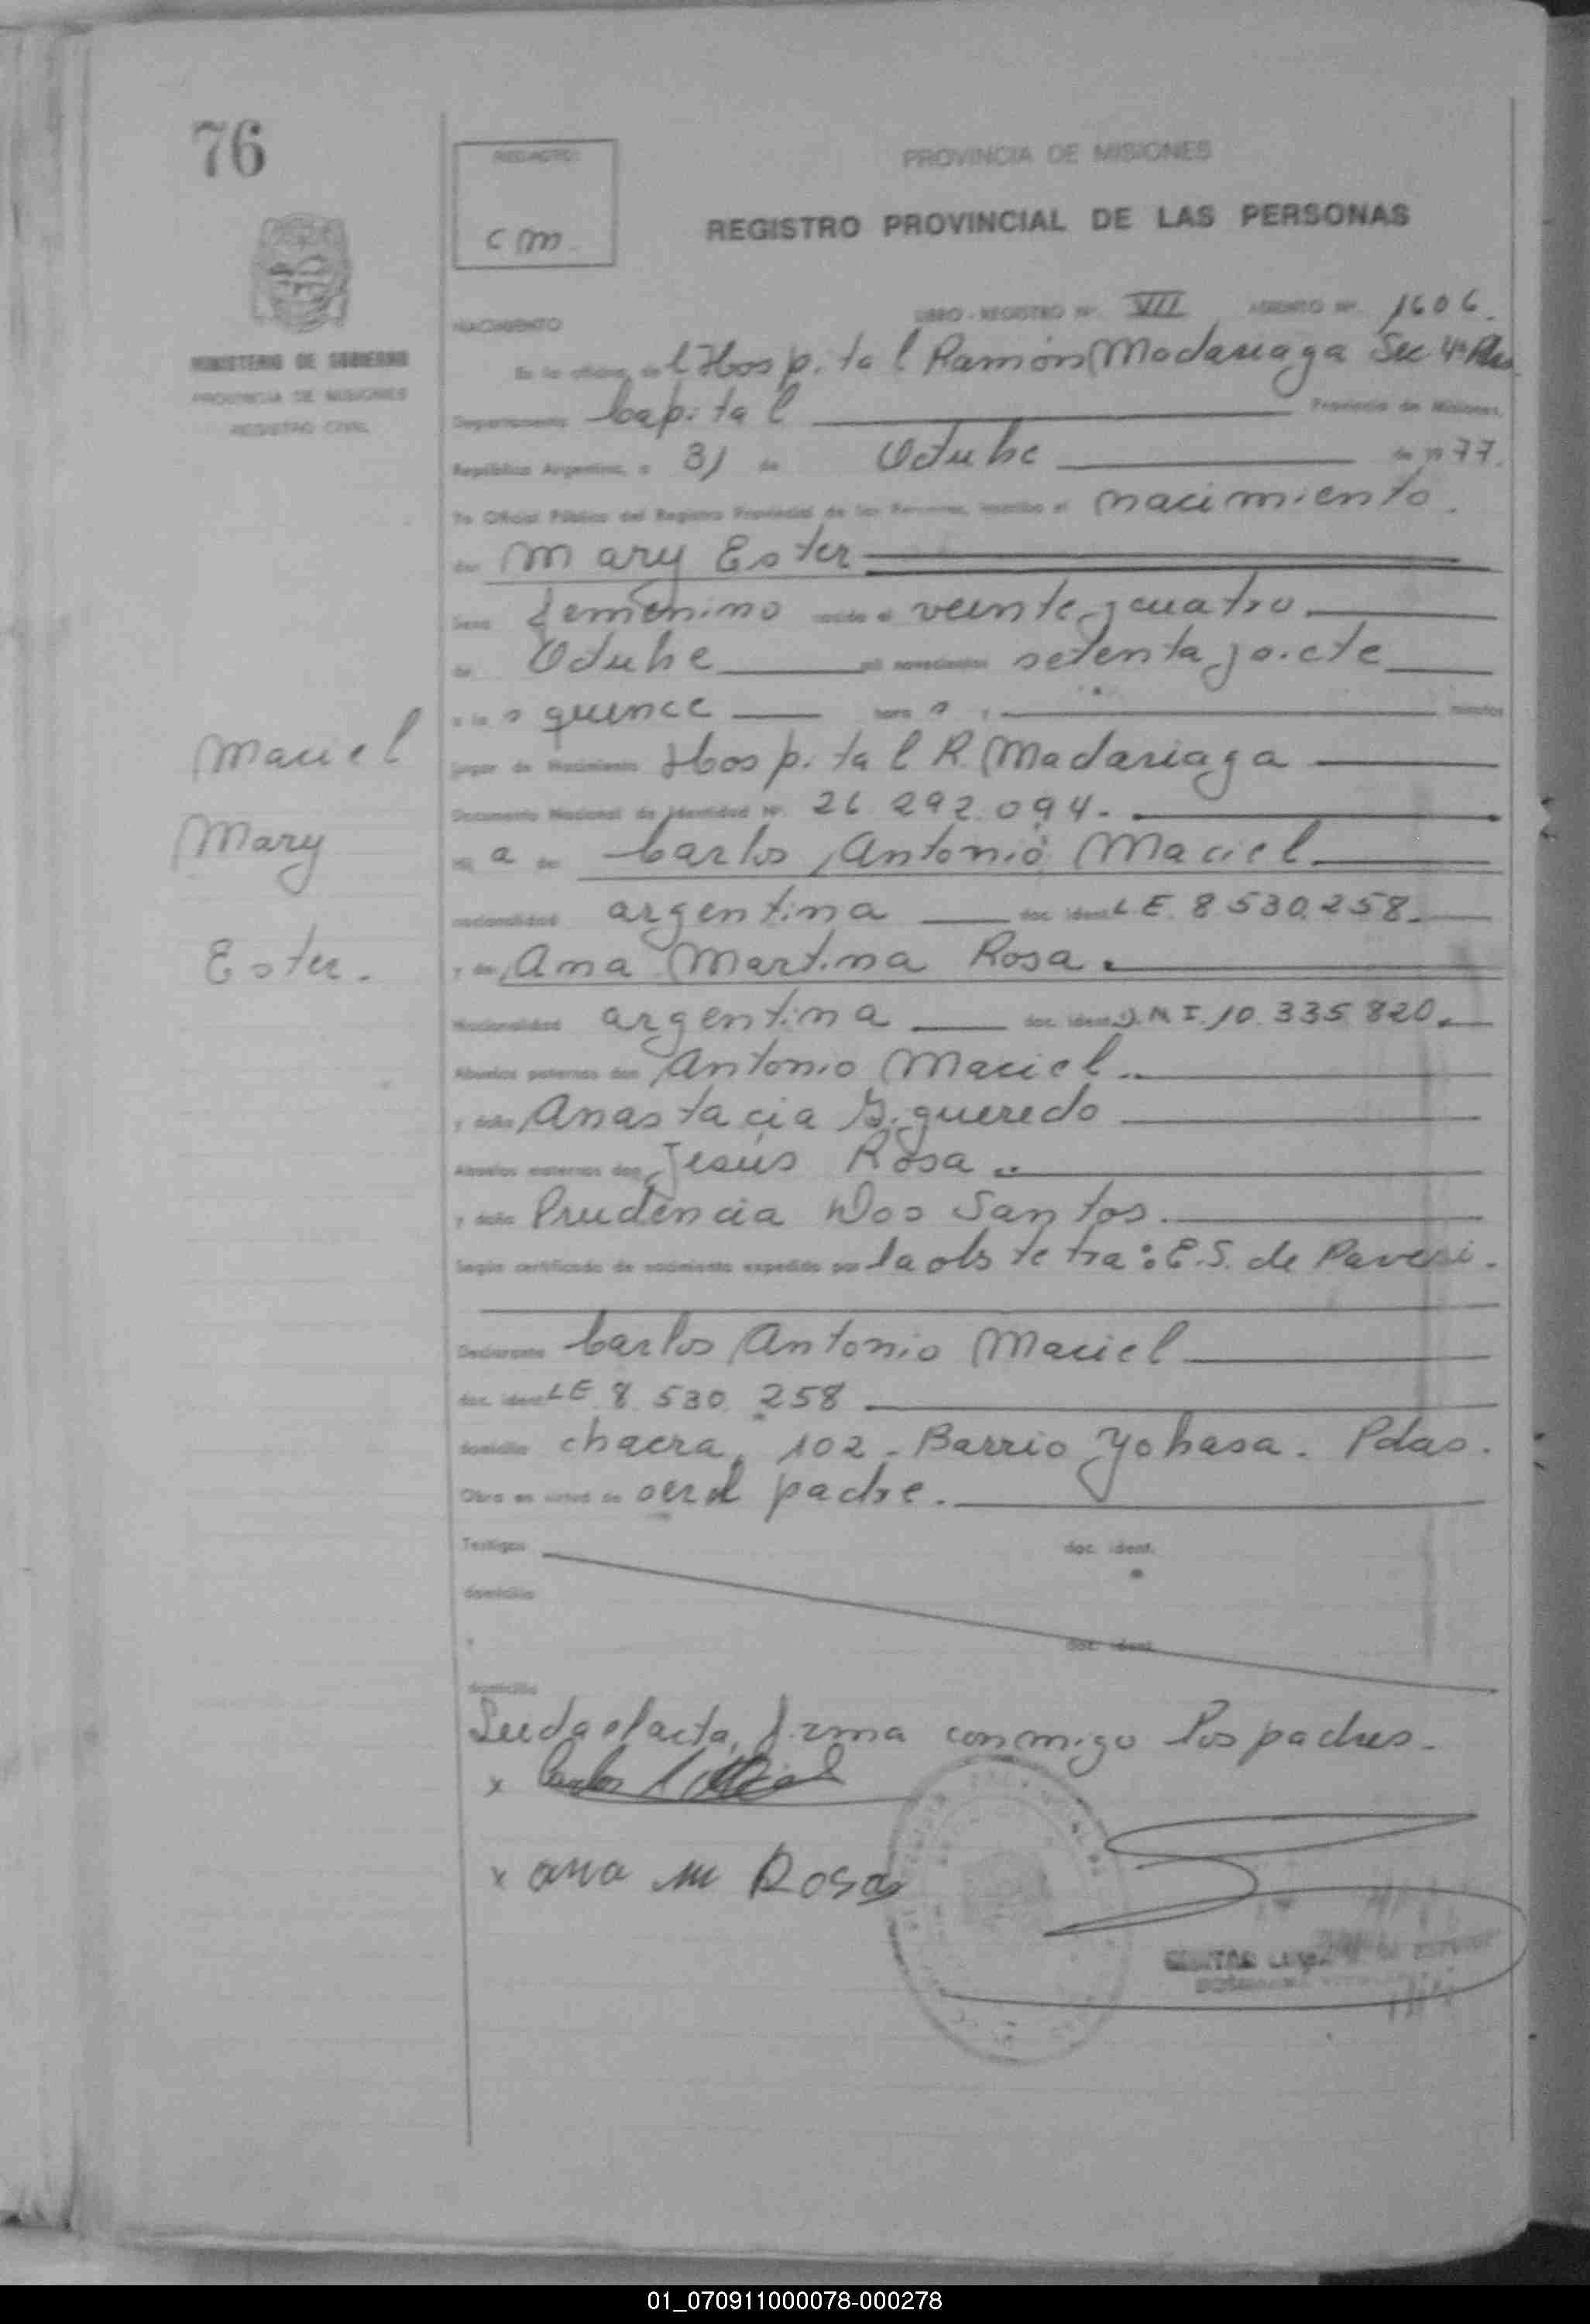 76
REDACTO:
cm.
PROVINCIA DE MISIONES
REGISTRO PROVINCIAL DE LAS PERSONAS
MINISTERIO DE GOBIERNO
PROVINCIA DE MISIONES
REGISTRO CIVIL
NACIMIENTO
LIBRO - REGISTRO Nº. VII ASIENTO Nº. 1606.
En la oficina del Hospital Ramón Madariaga Sec 4ª
Departamento Capital Provincia de Misiones,
República Argentina, a 31 de Octubre de 1977.
Yo Oficial Público del Registro Provincial de las Personas, inscribo el nacimiento.
de: Mary Ester
Sexo femenino nacido el veinte y cuatro
de Octubre mil novecientos setenta y siete
a las quince horas y minutos
lugar de Nacimiento Hospital R. Madariaga
Documento Nacional de Identidad Nº. 26 292.094.-
Maciel
Mary
Ester.
Hij a de Carlos Antonio Maciel
nacionalidad argentina doc. ident. L E. 8.530.258.
y de Ana Martina Rosa.
Nacionalidad argentina doc. ident. D.N I. 10.335.820.
Abuelos paternos don Antonio Maciel.
y doña Anastacia Figueredo
Abuelos maternos don Jesús Rosa..
y doña Prudencia Dos Santos.
Según certificado de nacimiento expedido por la obstetra: E.S. de Pavesi.
Declarante Carlos Antonio Maciel
doc. ident. L E 8. 530. 258
domicilio chacra, 102 - Barrio Yohasa. Pdas.
Obra en virtud de ser el padre.
Testigos doc. ident.
domicilio
y doc. ident.
domicilio
Leida el acta, firma conmigo los padres.
x Carlos A Maciel
x ana m Rosa
01_070911000078-000278